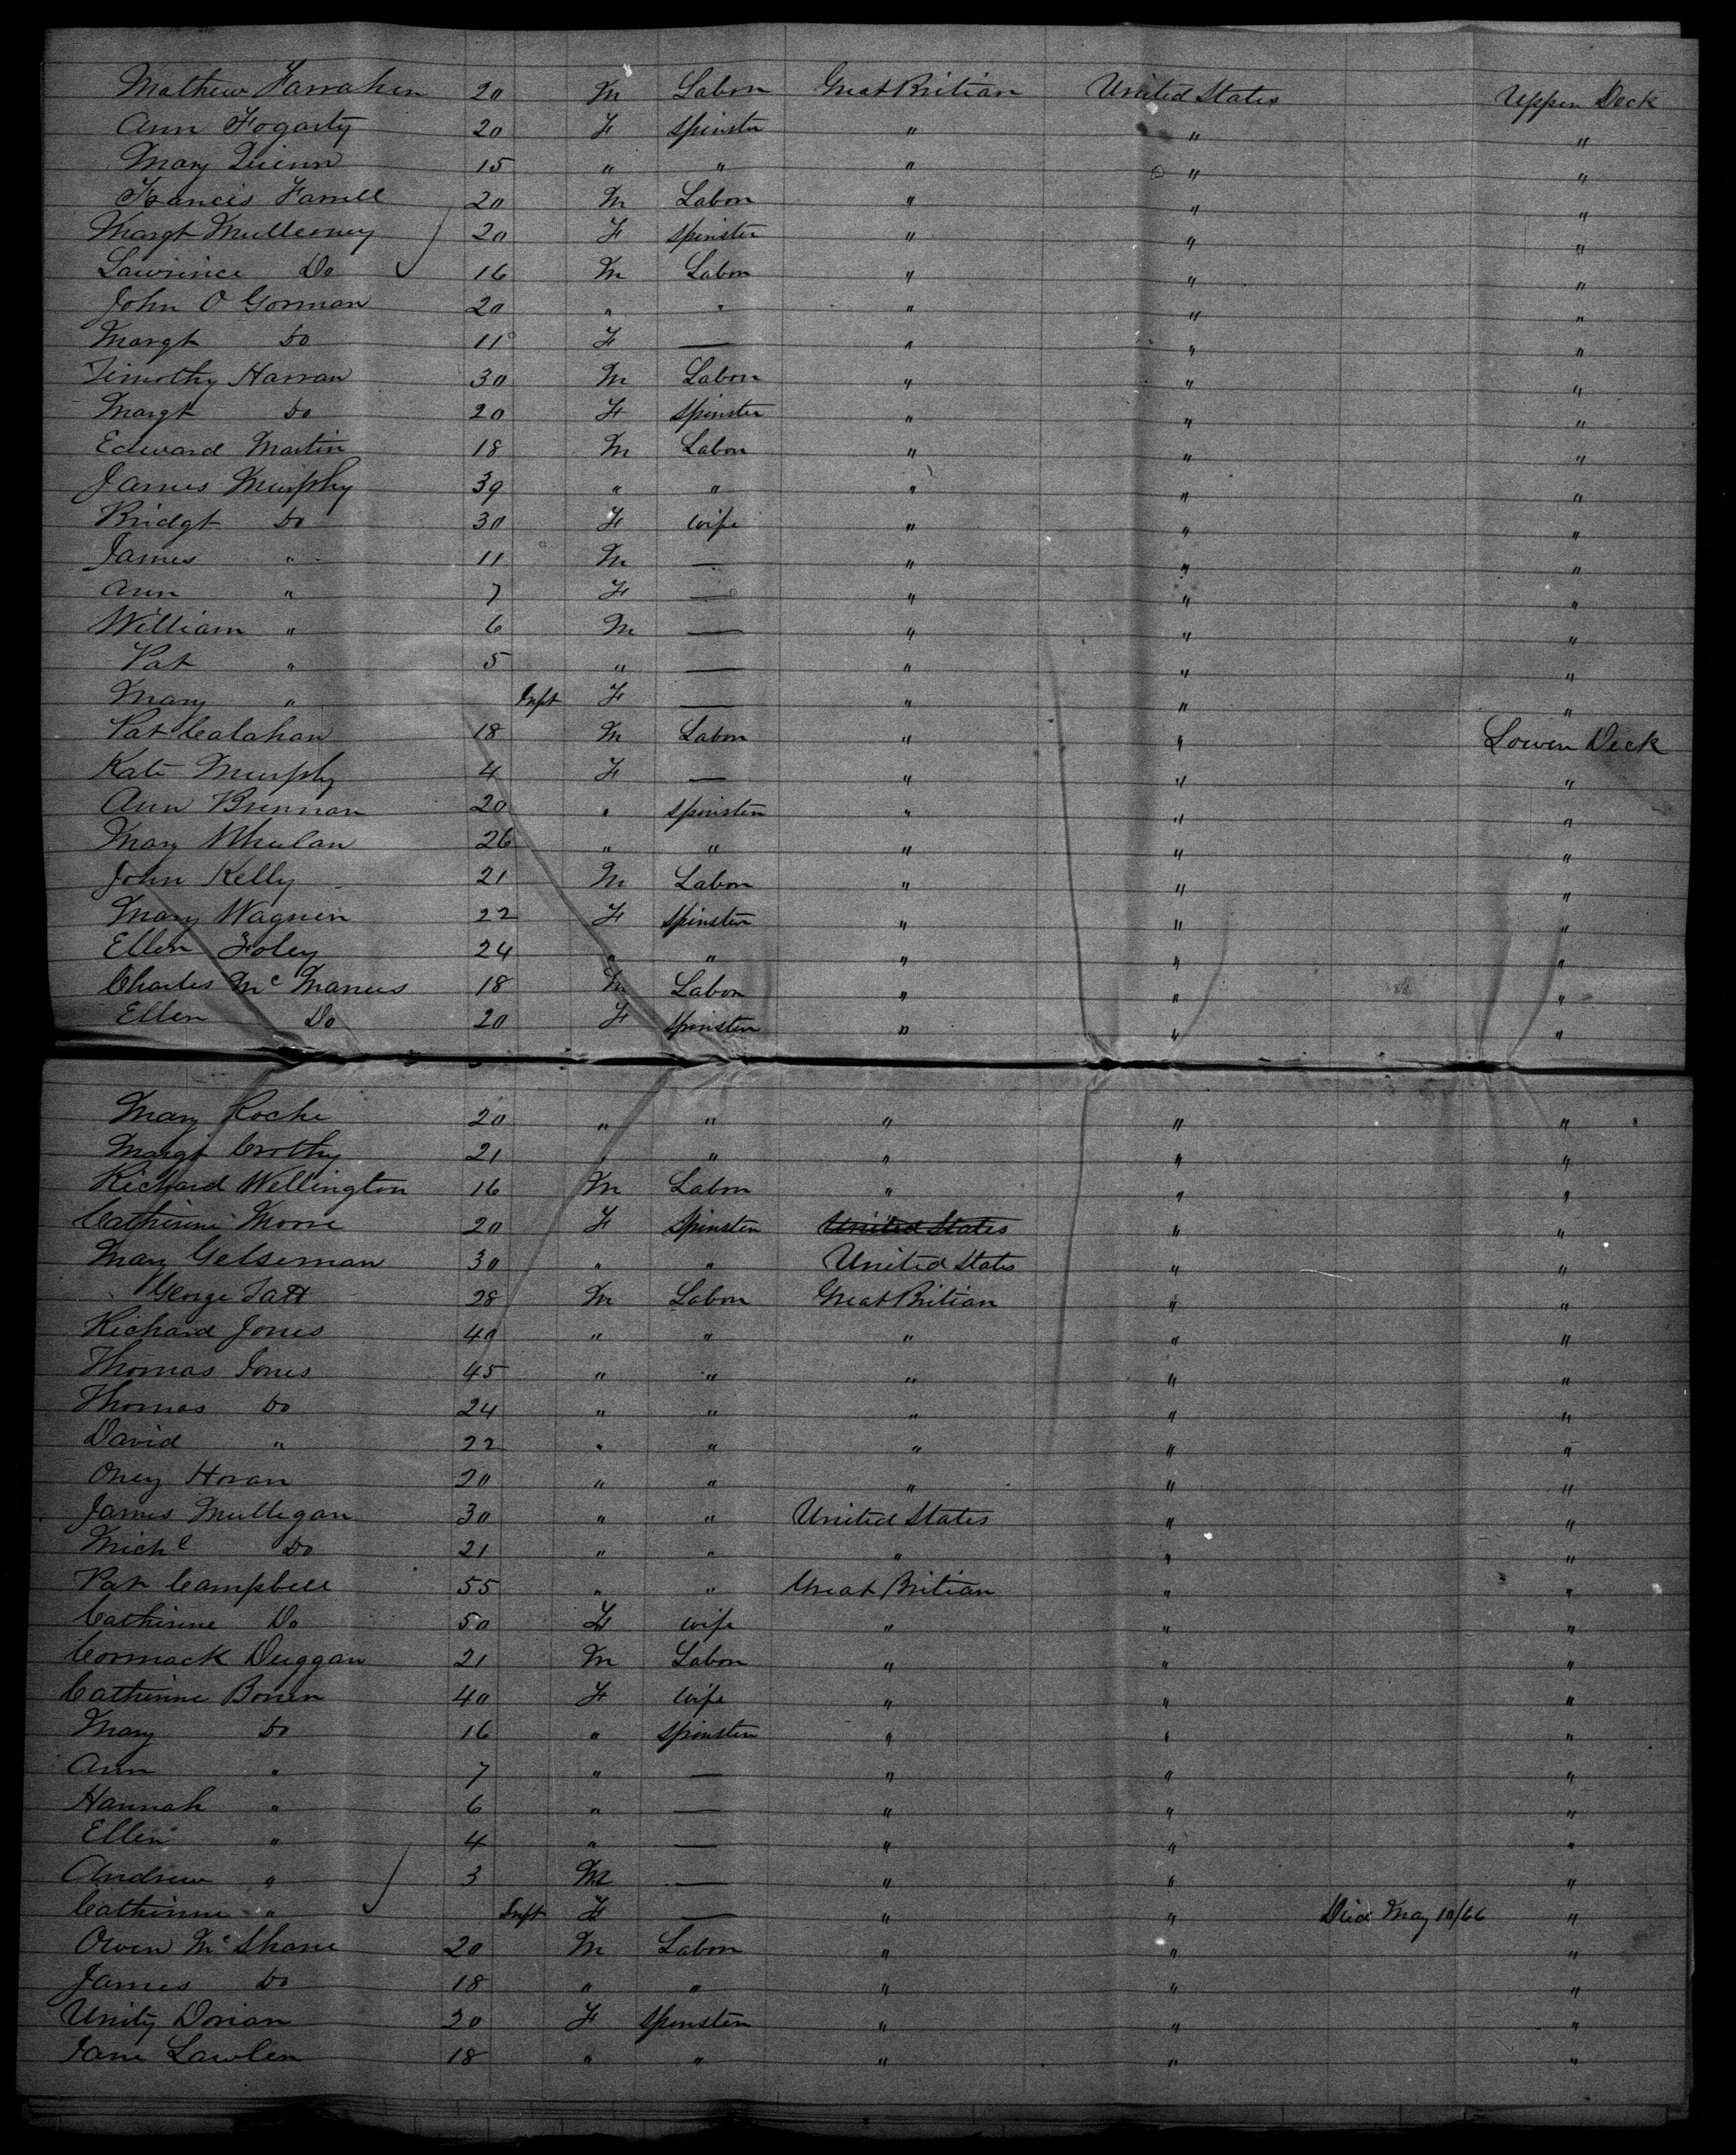 Mathew Farrahen 20 M Labor Great Britian United States Upper Deck
Ann Fogarty 20 F Spinster " " "
Mary Quinn 15 " " " " "
Francis Farrell 20 M Labor " " "
Margt Mulleeney 20 F Spinster " " "
Lawrince Do 16 M Labor " " "
John O Gorman 20 " " " " "
Margt Do 11 F — " " "
Timothy Harran 30 M Labor " " "
Margt Do 20 F Spinster " " "
Edward Martin 18 M Labor " " "
James Murphy 39 " " " " "
Bridgt Do 30 F wife " " "
James " 11 M — " " "
Ann " 7 F — " " "
William " 6 M — " " "
Pat " 5 " — " " "
Mary " Inft F — " " "
Pat Calahan 18 M Labor " " Lower Deck
Kate Murphy 4 F — " " "
Ann Brennan 20 " Spinster " " "
Mary Whelan 26 " " " " "
John Kelly 21 M Labor " " "
Mary Wagner 22 F Spinster " " "
Ellen Foley 24 " " " " "
Charles Mc Manus 18 M Labor " " "
Ellen Do 20 F Spinster " " "
Mary Roche 20 " " " " "
Margt Crothy 21 " " " " "
Richard Wellington 16 M Labor " " "
Catherine Moore 20 F Spinster United States " "
Mary Gelseman 30 " " United States " "
George Tatt 28 M Labor Great Britian " "
Richard Jones 40 " " " " "
Thomas Jones 45 " " " " "
Thomas Do 24 " " " " "
David " 22 " " " " "
Oney Horan 20 " " " " "
James Mullegan 30 " " United States " "
Michl Do 21 " " " " "
Pat Campbell 55 " " Great Britian " "
Catherine Do 50 F wife " " "
Cormack Duggan 21 M Labor " " "
Catherine Boner 40 F wife " " "
Mary Do 16 " Spinster " " "
Ann " 7 " — " " "
Hannah " 6 " — " " "
Ellen " 4 " — " " "
Andrew " 3 M — " " "
Catherine " Inft F — " " Died May 10/66 "
Owen Mc Shane 20 M Labor " " "
James Do 18 " " " " "
Unity Dorian 20 F Spinster " " "
Jane Lawler 18 " " " " "